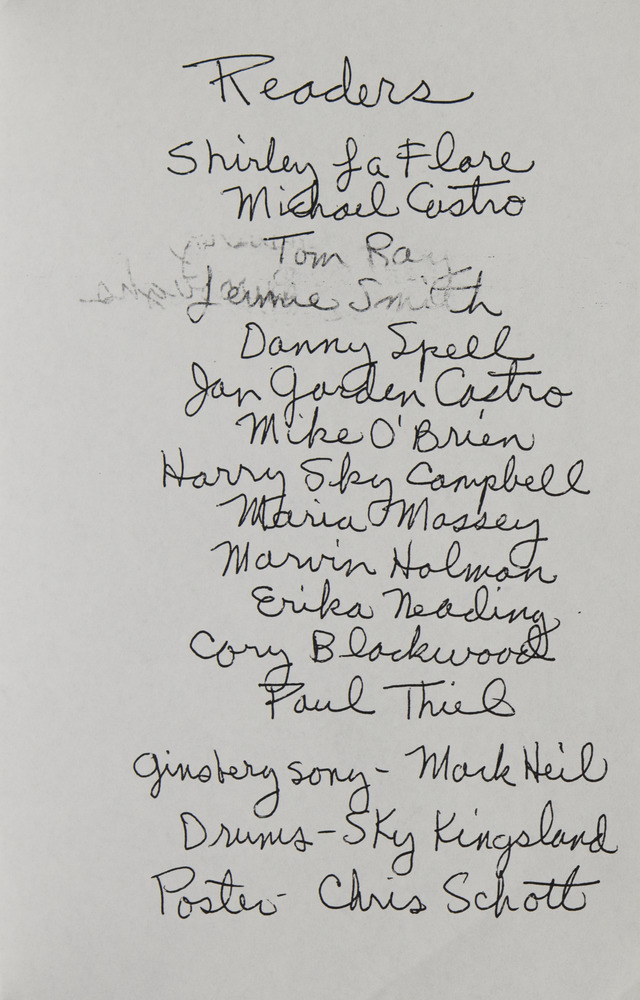 Readers
Shirley La Flore
Michael Castro
Tom Ray
Jennie Smith
Danny Spell
Jan Garden Castro
Mike O'Brien
Harry Sky Campbell
Maria Massey
Marvin Holman
Erika Neading
Cory Blackwood
Paul Thiel
Ginsberg song - Mark Heil
Drums - Sky Kingsland
Poster - Chris Schott